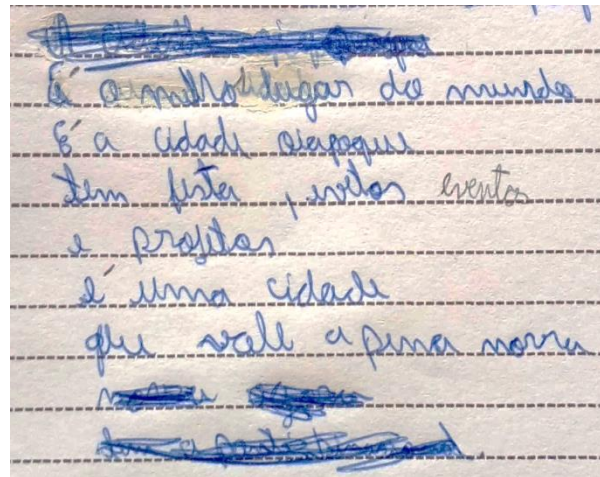 é o melhor lugar do mundo
É a cidade oiapoque
tem festa, evetos eventos
e projetos
é uma cidade
que vale a pena morra